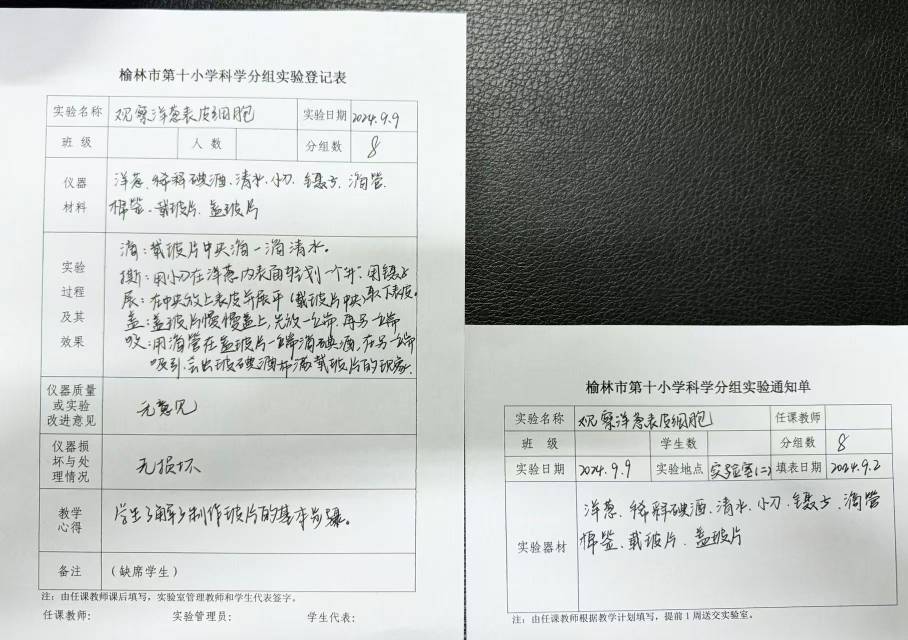 榆林市第十小学科学分组实验登记表
实验名称 观察洋葱表皮细胞 实验日期 2024.9.9
班 级 人 数 分组数 8
仪器 洋葱、稀释碘酒、清水、小刀、镊子、滴管、
材料 棉签、载玻片、盖玻片
实验
过程
及其
效果
滴:载玻片中央滴一滴清水。
撕:用小刀在洋葱内表面轻划一个井:用镊子
展:在中央放上表皮并展平(载玻片中央)取下表皮。
盖:盖玻片慢慢盖上,先放一端,再另一端
吸:用滴管在盖玻片一端滴碘酒,在另一端
吸引,会出现碘酒布满载玻片的现象。
仪器质量
或实验
改进意见
无意见
仪器损
坏与处
理情况
无损坏
教学
心得
学生了解了制作玻片的基本步骤。
备注 (缺席学生)
注:由任课教师课后填写,实验室管理教师和学生代表签字。
任课教师: 实验管理员: 学生代表:
榆林市第十小学科学分组实验通知单
实验名称 观察洋葱表皮细胞 任课教师
班 级 学生数 分组数 8
实验日期 2024.9.9 实验地点 实验室(二) 填表日期 2024.9.2
实验器材
洋葱、稀释碘酒、清水、小刀、镊子、滴管
棉签、载玻片、盖玻片
注:由任课教师根据教学计划填写,提前1周送交实验室。